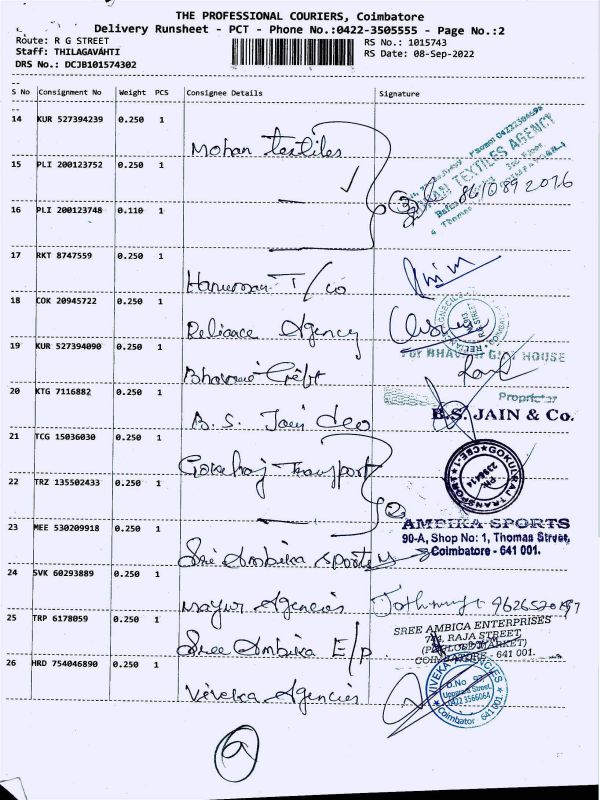 THE PROFESSIONAL COURIERS, Coimbatore
Delivery Runsheet - PCT - Phone No.:0422-3505555 - Page No.:2
Route: R G STREET
RS No.: 1015743
Staff: THILAGAVAHTI
RS Date: 08-Sep-2022
DRS No.: DCJB101574302
S No Consignment No Weight PCS Consignee Details Signature
14 KUR 527394239 0.250 1
Mohan Textiles
TEXTILES AGENCY
15 PLI 200123752 0.250 1
16 PLI 200123748 0.110 1
3
17 RKT 8747559 0.250 1
Hanuman T/co
18 COK 20945722 0.250 1
Reliance Agency
19 KUR 527394090 0.250 1
FOR BHAVANI GIFT HOUSE
20 KTG 7116882 0.250 1
Proprietor
B.S. Jain &co
B.S. JAIN & Co.
21 TCG 15036030 0.250 1
Gokulraj Transport
GOKULRAJ TRANSPORT
22 TRZ 135502433 0.250 1
2
23 MEE 530209918 0.250 1
AMBIKA SPORTS
90-A, Shop No: 1, Thomas Street,
Coimbatore - 641 001.
Sri Ambika Sports
24 SVK 60293889 0.250 1
Mayur Agencies
25 TRP 6178059 0.250 1
SREE AMBICA ENTERPRISES
RAJA STREET,
COIMBATORE - 641 001.
Sree Ambika E/p
26 HRD 754046890 0.250 1
Viveka Agencies
VIVEKA AGENCIES
Coimbator 641 001.